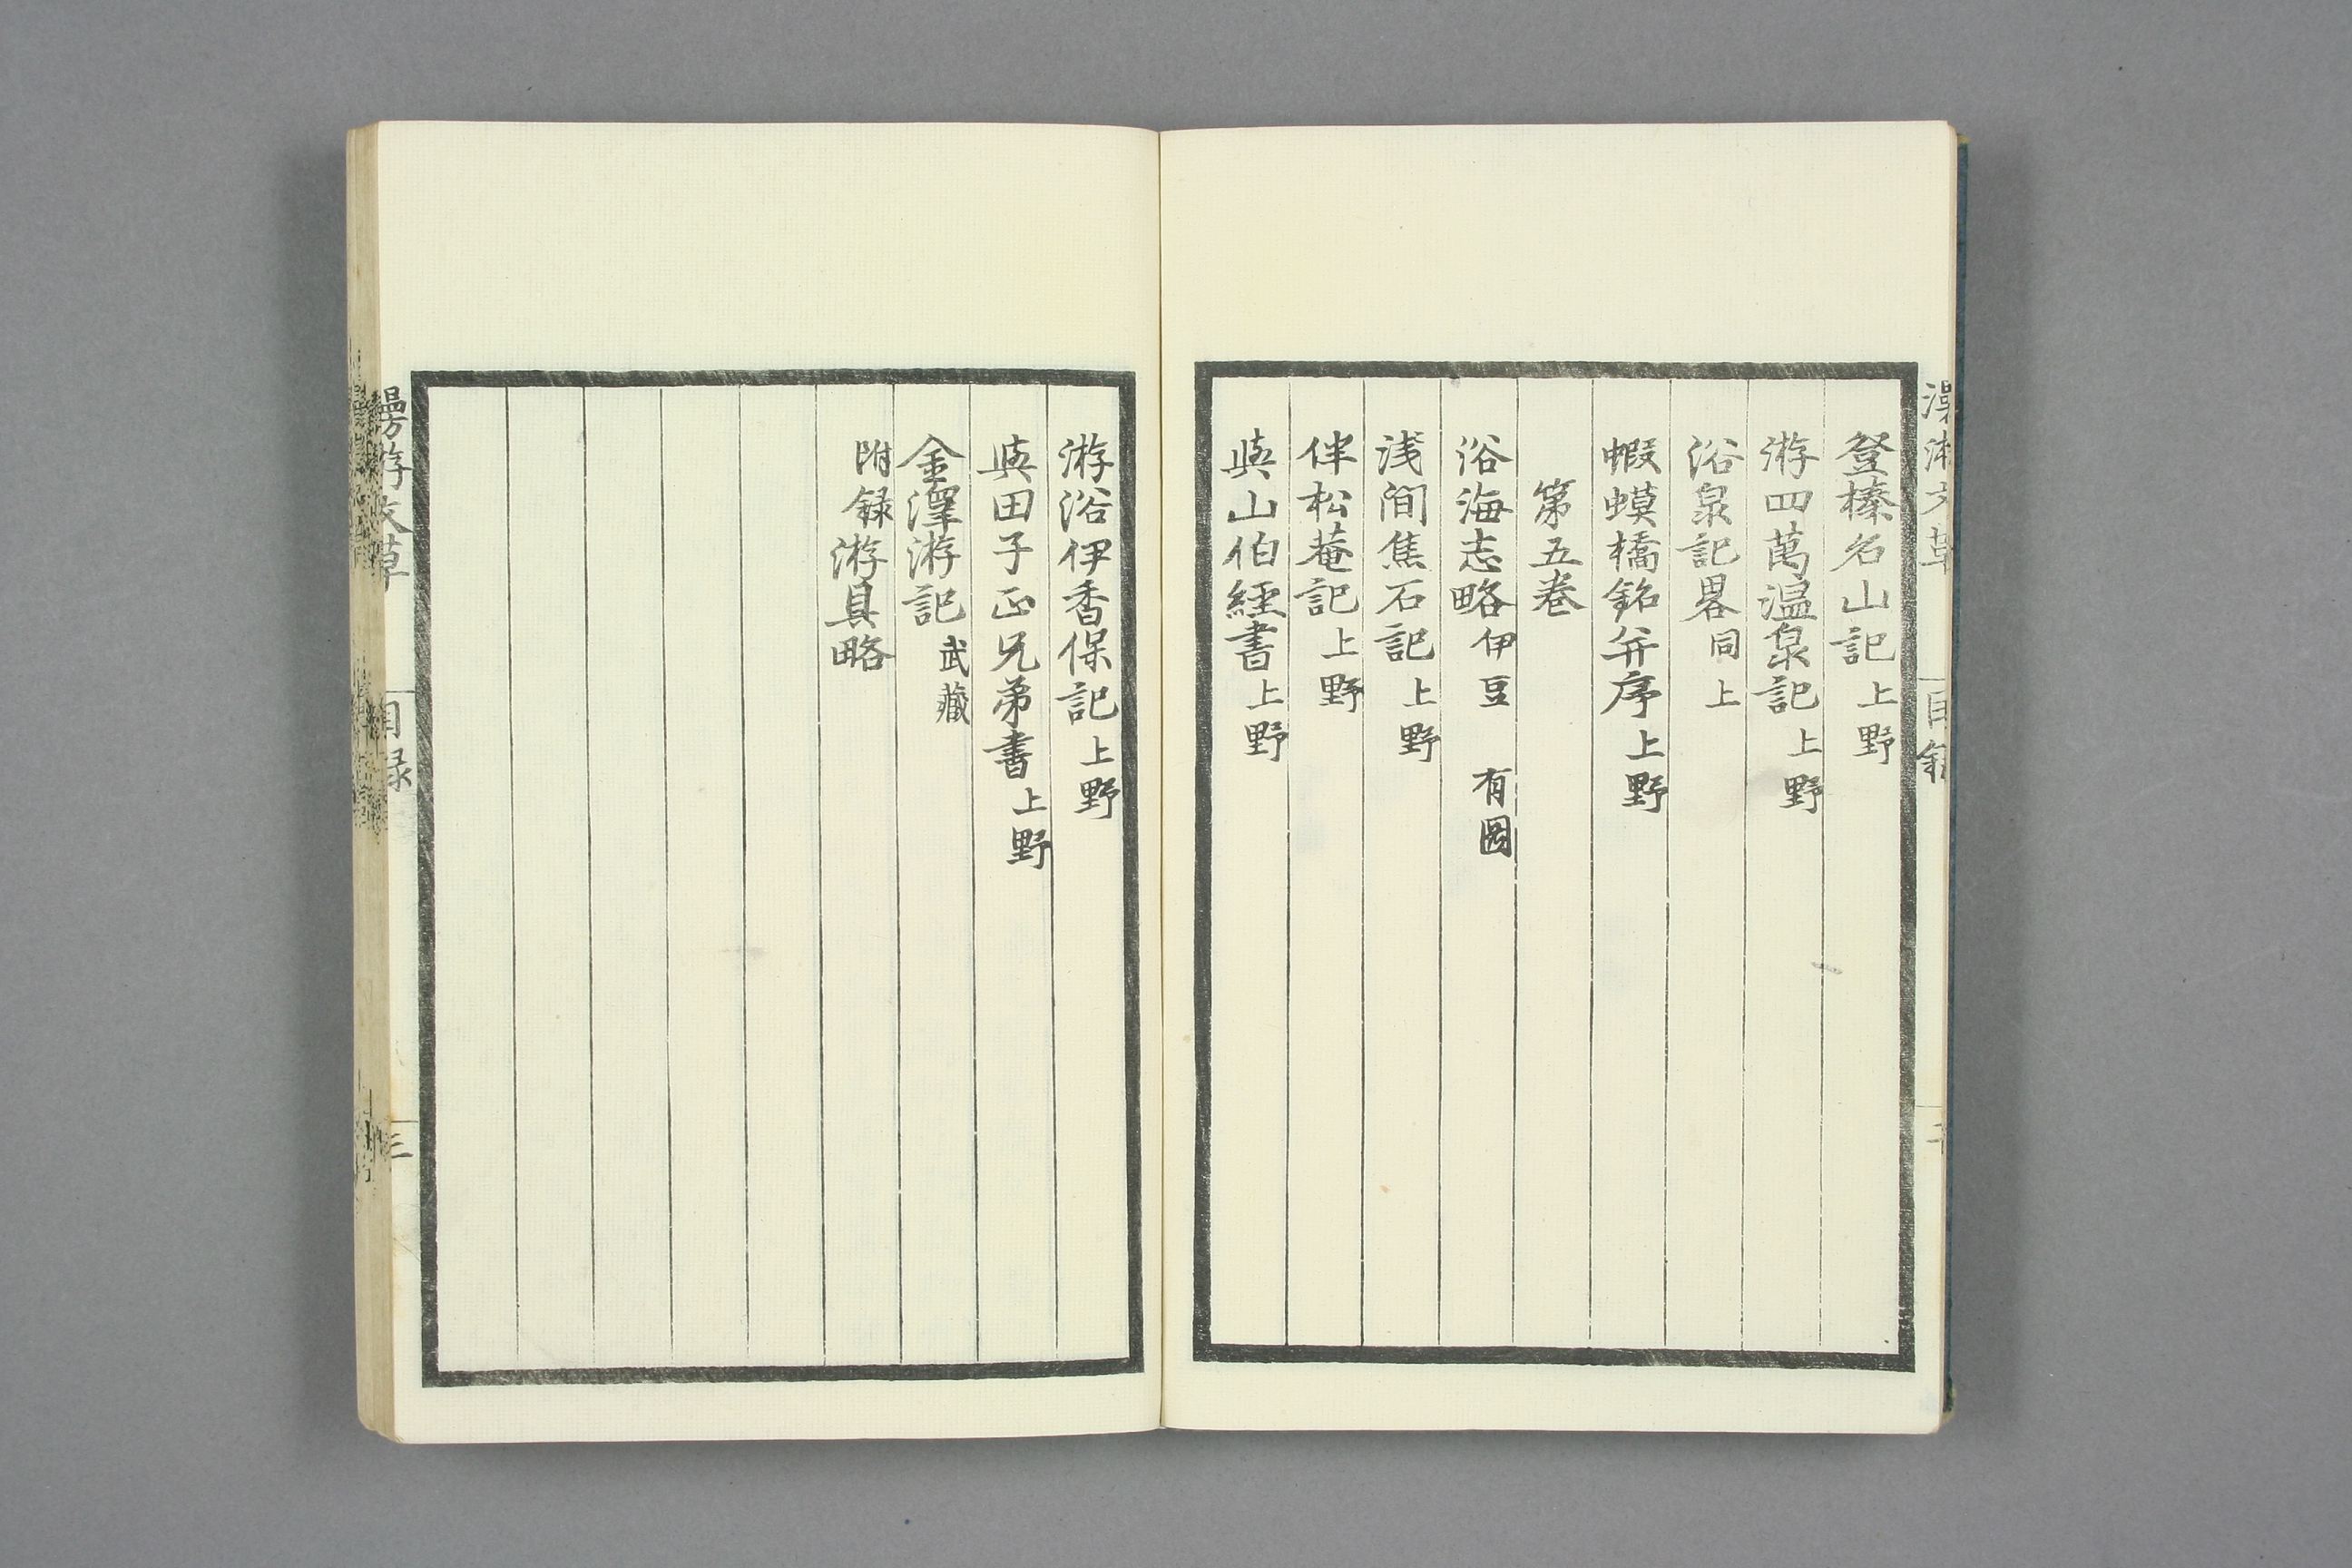 登榛名山記上野
游四萬温泉記上野
浴泉記畧同上
蝦蟆橋銘并序上野
第五卷
浴海志略伊豆 有圖
浅間焦石記上野
伴松菴記上野
與山伯經書上野
游浴伊香保記上野
與田子正兄弟書上野
金澤游記武藏
附録游具略
漫游文草
目録
三